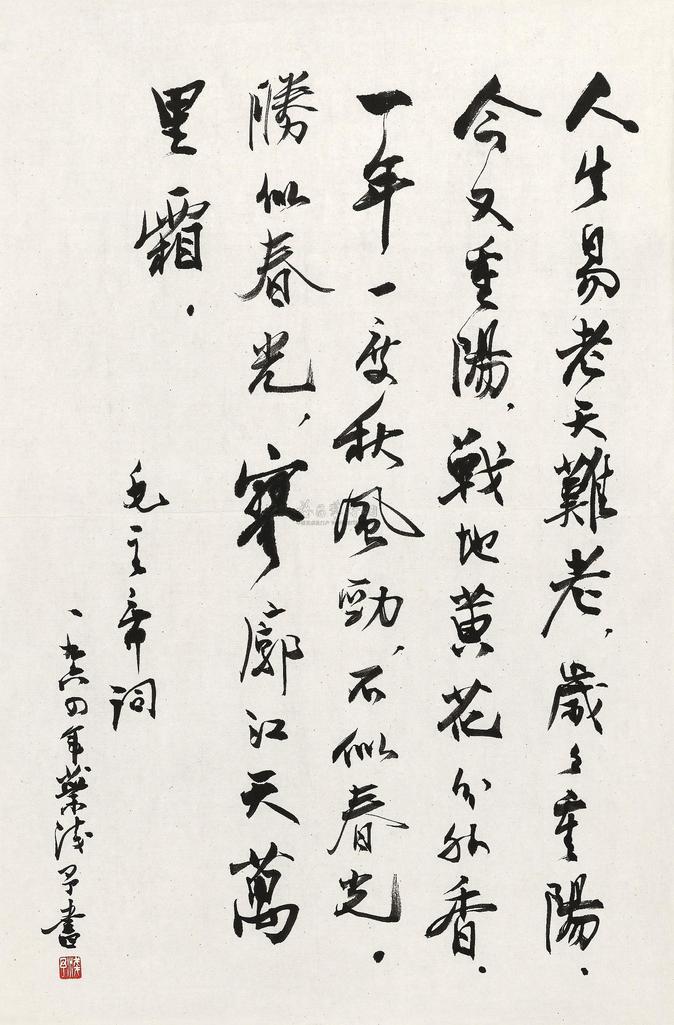 人生易老天難老，歲々重陽，
今又重陽，戰地黄花分外香．
一年一度秋風勁，不似春光．
勝似春光，寥廓江天萬
里霜．
毛主席詞
一九六四年葉淺予書